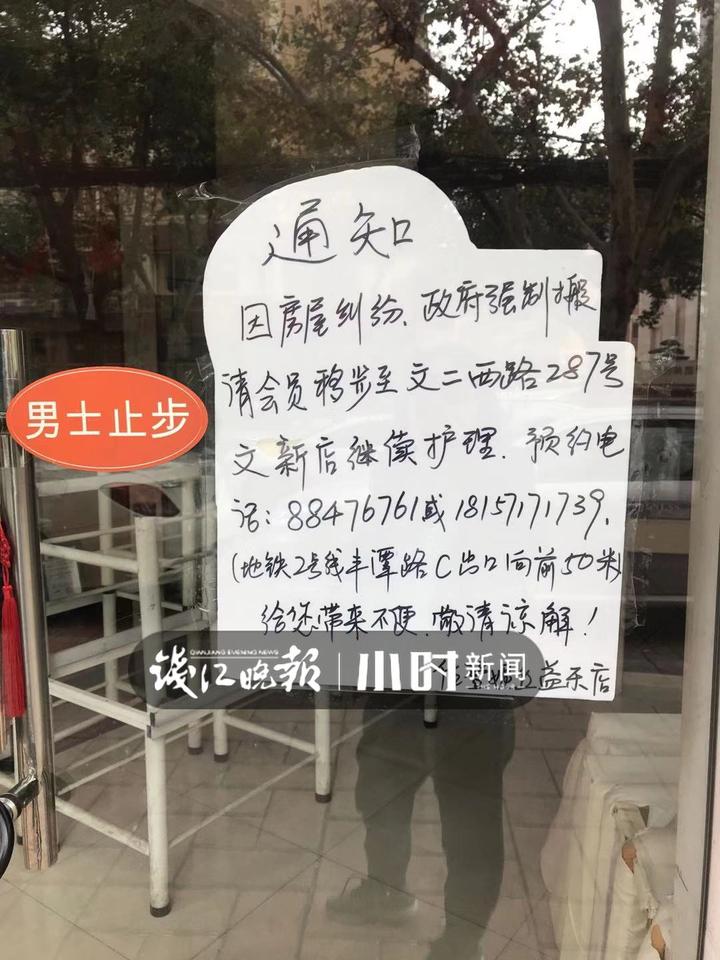 通知
因房屋纠纷、政府强制搬
请会员移步至文二西路287号
男士止步
文新店继续护理.预约电
话：88476761或18157171739.
(地铁2号线丰潭路C出口向前50米)
给您带来不便.敬请谅解！
QIANJIANG EVENING NEWS
钱江晚报 小时新闻
益乐店